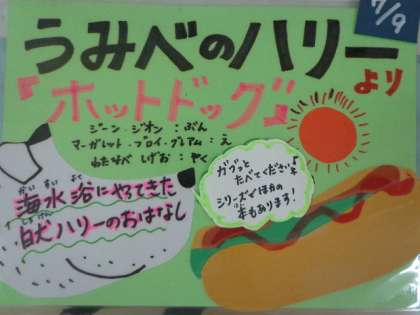 7/9
うみべのハリー
より
『ホットドッグ』
ジーン・ジオン：ぶん
マーガレット・ブロイ・グレアム：え
わたなべ しげお：やく
ガブッと
たべてください♪
シリーズでほかの
本もあります！
かいすいよく
海水浴にやってきた
しろいけん
白犬ハリーのおはなし